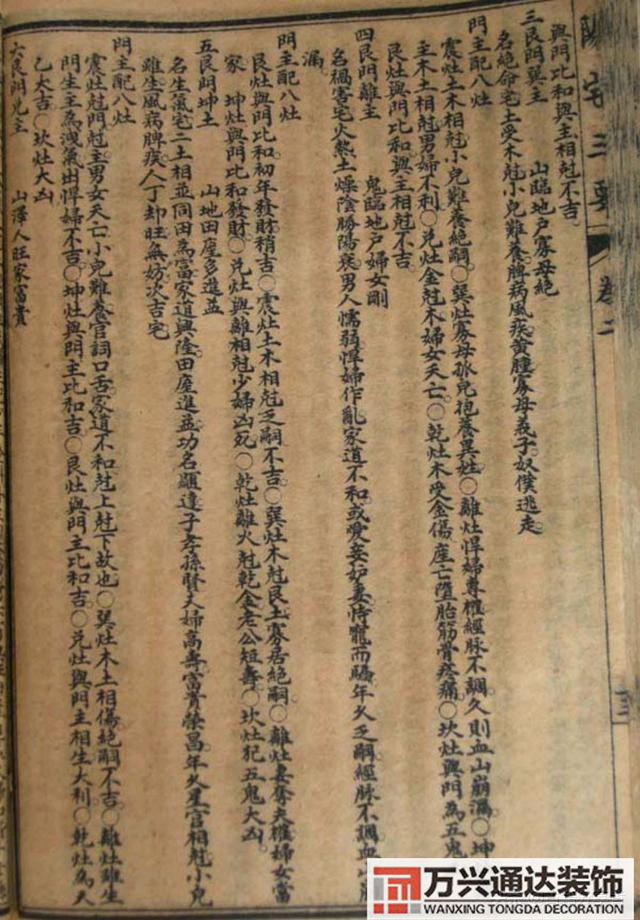 陽宅三要 卷二
與門比和與主相尅不吉
三艮門巽主 山臨地戶寡母絕
名絕命宅土受木尅小兒難養脾病風疾黃腫寡母義子奴僕逃走
門主配八灶
震灶土木相尅小兒難養絕嗣○巽灶寡母孤兒抱養異姓○離灶悍婦專權經脉不調久則血山崩漏○坤
主木土相尅男婦不利○兌灶金尅木婦女夭亡○乾灶木受金傷產亡墮胎筋骨疼痛○坎灶與門為五鬼
艮灶與門比和與主相尅不吉
四艮門離主 鬼臨地戶婦女剛
名禍害宅火熱土燥陰勝陽衰男人懦弱悍婦作亂家道不和或愛妾妒妻恃寵而驕年久乏嗣經脉不調血山崩
漏
門主配八灶
艮灶與門比和初年發財稍吉○震灶土木相尅乏嗣不吉○巽灶木尅艮土寡居絕嗣○離灶妻奪夫權婦女當
家 坤灶與門比和發財○兌灶與離相尅少婦凶死○乾灶離火尅乾金老公短壽○坎灶犯五鬼大凶
五艮門坤主 山地田產多進益
名生氣宅二土相並同田為富家道興隆田產進益功名顯達子孝孫賢夫婦高壽富貴榮昌年久星宮相尅小兒
雖生風病脾疾人丁却旺無妨次吉宅
門主配八灶
震灶尅門尅主男女夭亡小兒難養官詞口舌家道不和尅上尅下故也○巽灶木土相傷絕嗣不吉○離灶雖生
門生主為洩氣出悍婦不吉○坤灶與門主比和吉○艮灶與門主比和吉○兌灶與門主相生大利○乾灶為天
乙大吉○坎灶大凶
六艮門兌主 山澤人旺家富貴
万兴通达装饰
WANXING TONGDA DECORATION